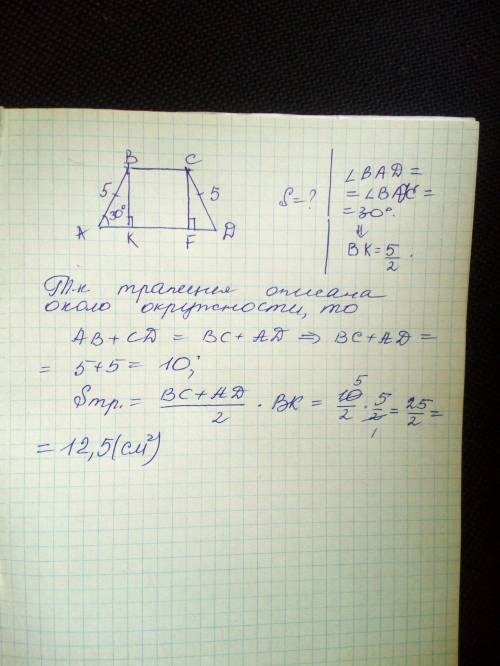 B C
5 5
30°
A K F D
S = ?
∠BAD =
= ∠BAK =
= 30°.
⇓
BK = 5/2.
Т.к трапеция описана
около окружности, то
AB + CD = BC + AD ⇒ BC + AD =
= 5 + 5 = 10;
Sтр. = (BC + AD)/2 · BK = 10/2 · 5/2 = 25/2 =
= 12,5 (см²)